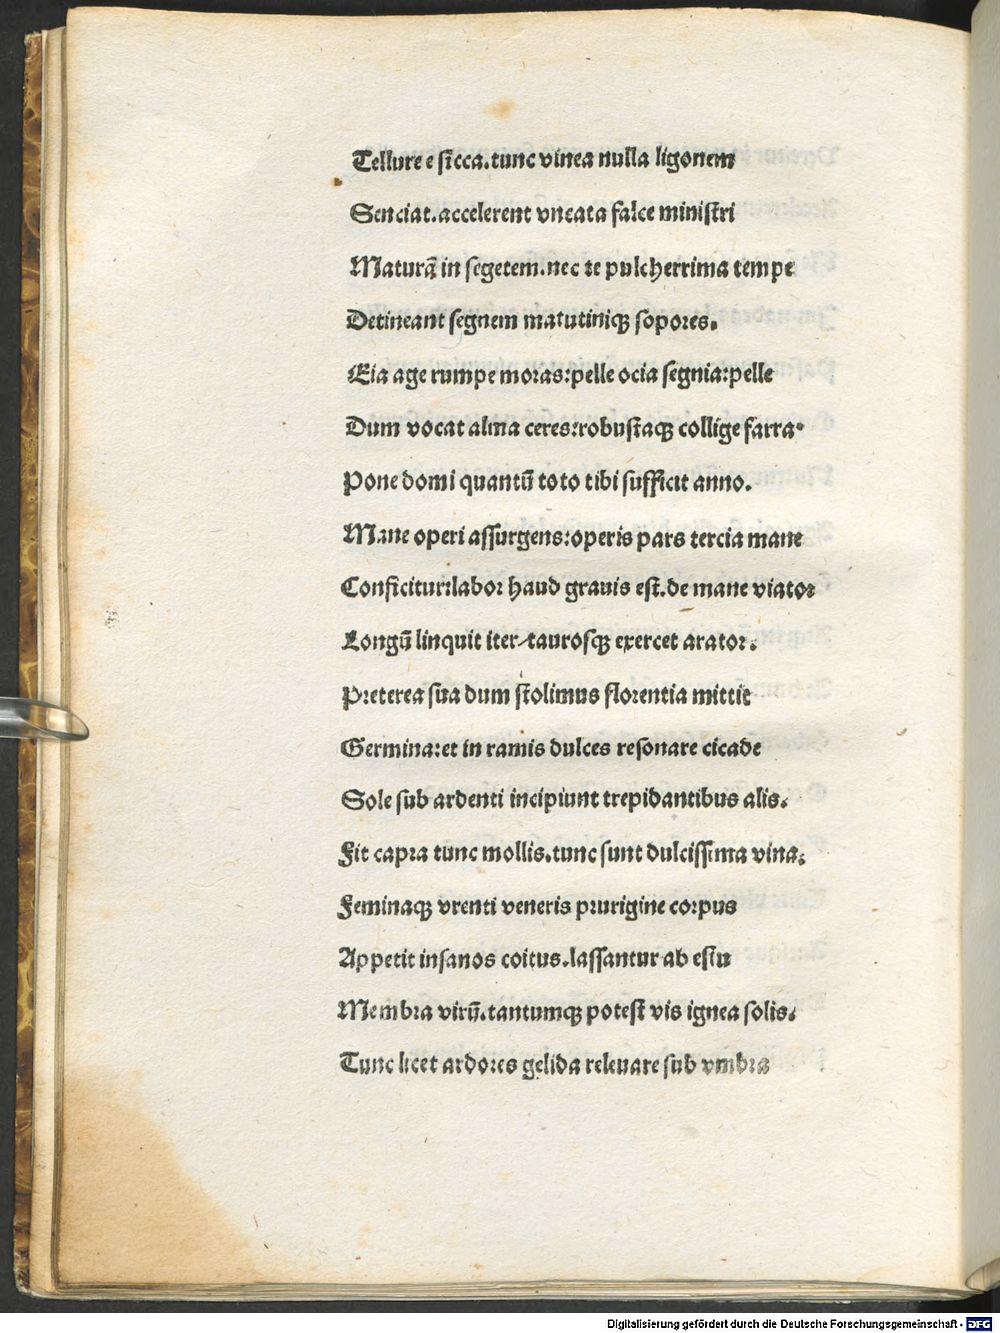 Tellure e sicca.tunc vinea nulla ligonem
Senciat.accelerent vncata falce ministri
Maturã in segetem.nec te pulcherrima tempe
Detineant segnem matutiniqꝫ sopores.
Eia age rumpe moras:pelle ocia segnia:pelle
Dum vocat alma ceres:robustaqꝫ collige farra.
Pone domi quantũ toto tibi sufficit anno.
Mane operi assurgens:operis pars tercia mane
Conficitur:labor haud grauis est.de mane viator
Longũ linquit iter/taurosqꝫ exercet arator.
Preterea sua dum stolimus florentia mittit
Germina:et in ramis dulces resonare cicade
Sole sub ardenti incipiunt trepidantibus alis.
Fit capra tunc mollis.tunc sunt dulcissima vina.
Feminaqꝫ vrenti veneris prurigine corpus
Appetit insanos coitus.lassantur ab estu
Membra virũ.tantumqꝫ potest vis ignea solis.
Tunc licet ardores gelida releuare sub vmbra
Digitalisierung gefördert durch die Deutsche Forschungsgemeinschaft - DFG